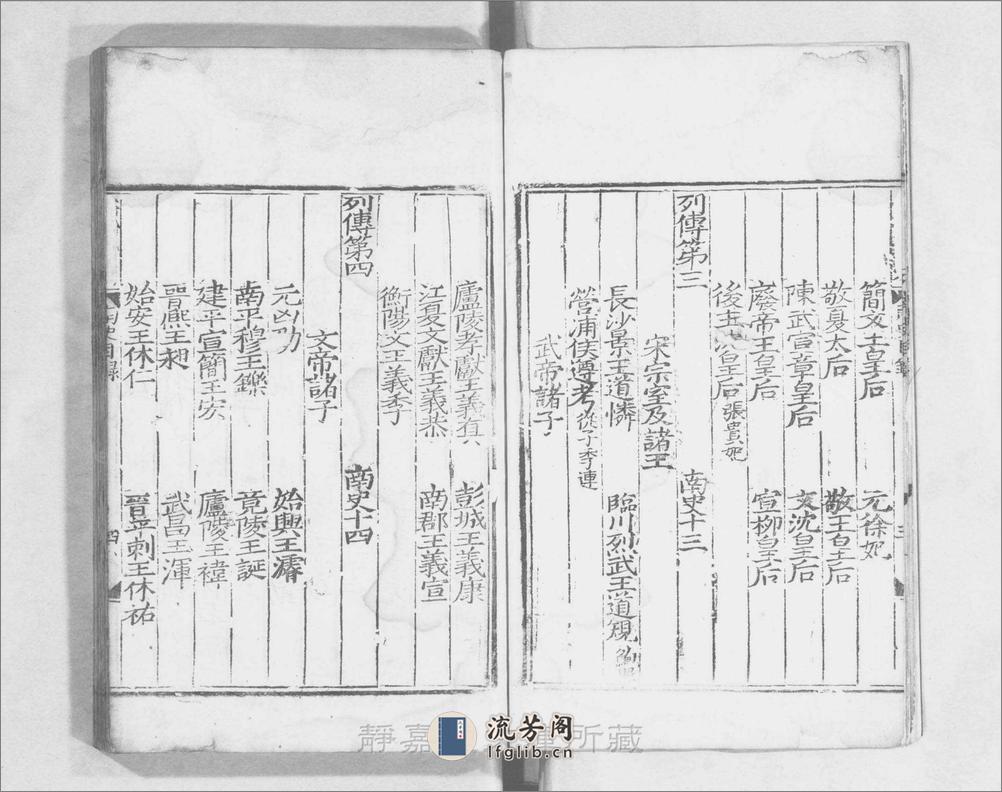 簡文王皇后　元徐妃
敬夏太后　敬王皇后
陳武宣章皇后　文沈皇后
廢帝王皇后　宣柳皇后
後主沈皇后 張貴妃
列傳第三　南史十三
宋宗室及諸王
長沙景王道憐　臨川烈武王道規 鮑照
營浦侯遵考 從子季連
武帝諸子
廬陵孝獻王義真　彭城王義康
江夏文獻王義恭　南郡王義宣
衡陽文王義季
列傳第四　南史十四
文帝諸子
元凶劭　始興王濬
南平穆王鑠　竟陵王誕
建平宣簡王宏　廬陵王禕
晋熈王昶　武昌王渾
始安王休仁　晋平剌王休祐
四
靜嘉 所藏
流芳阁
lfglib.cn